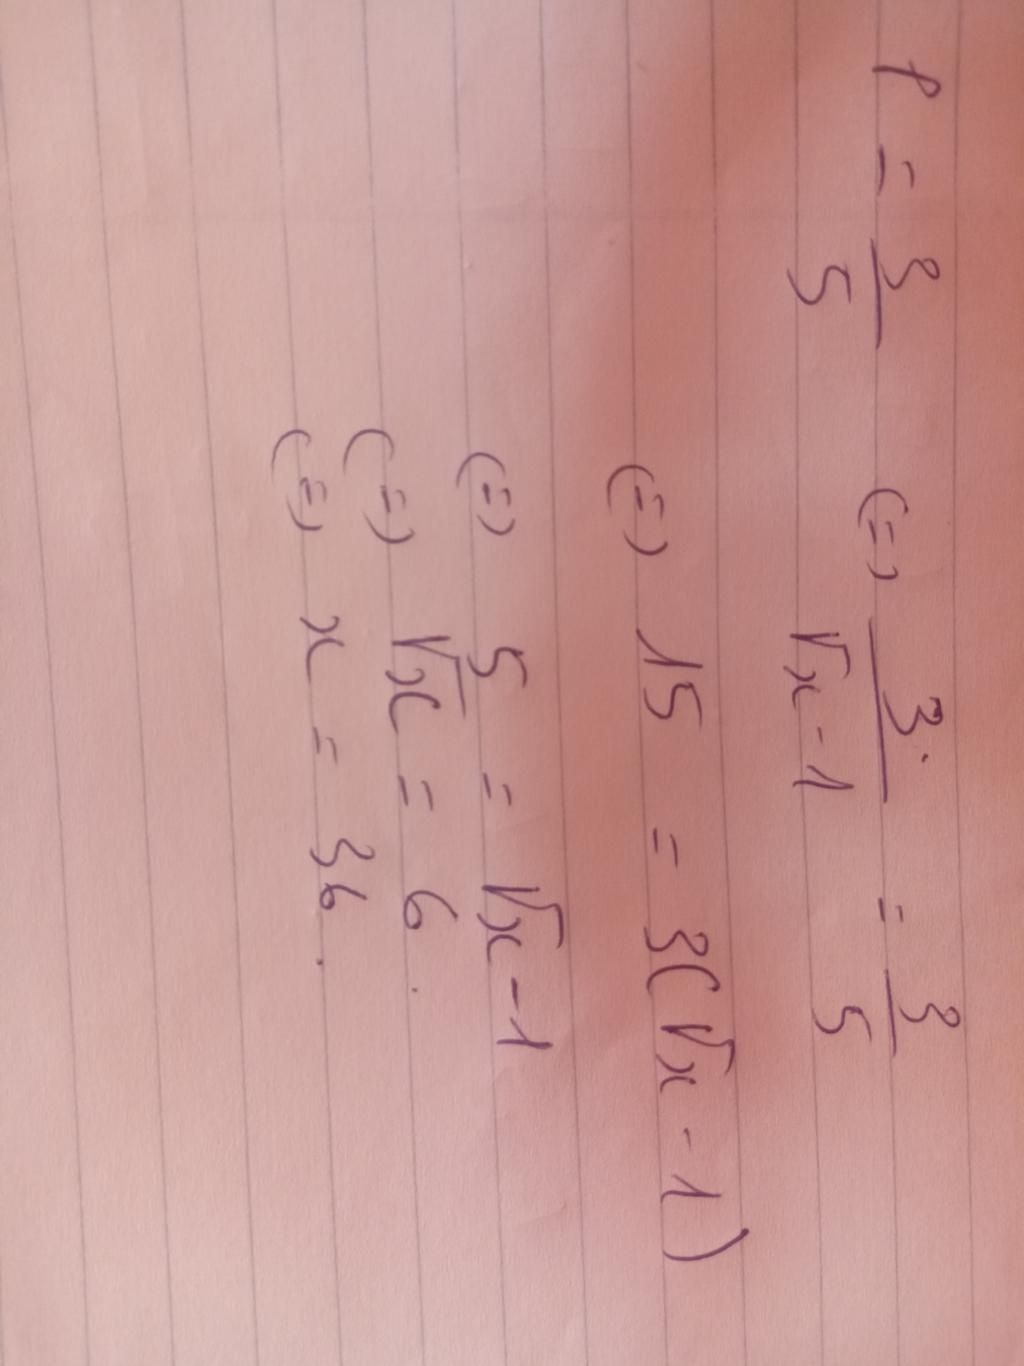 P = 3/5 (=) 3/√x-1 = 3/5
(=) 15 = 3(√x - 1)
(=) 5 = √x - 1
(=) √x = 6.
(=) x = 36.